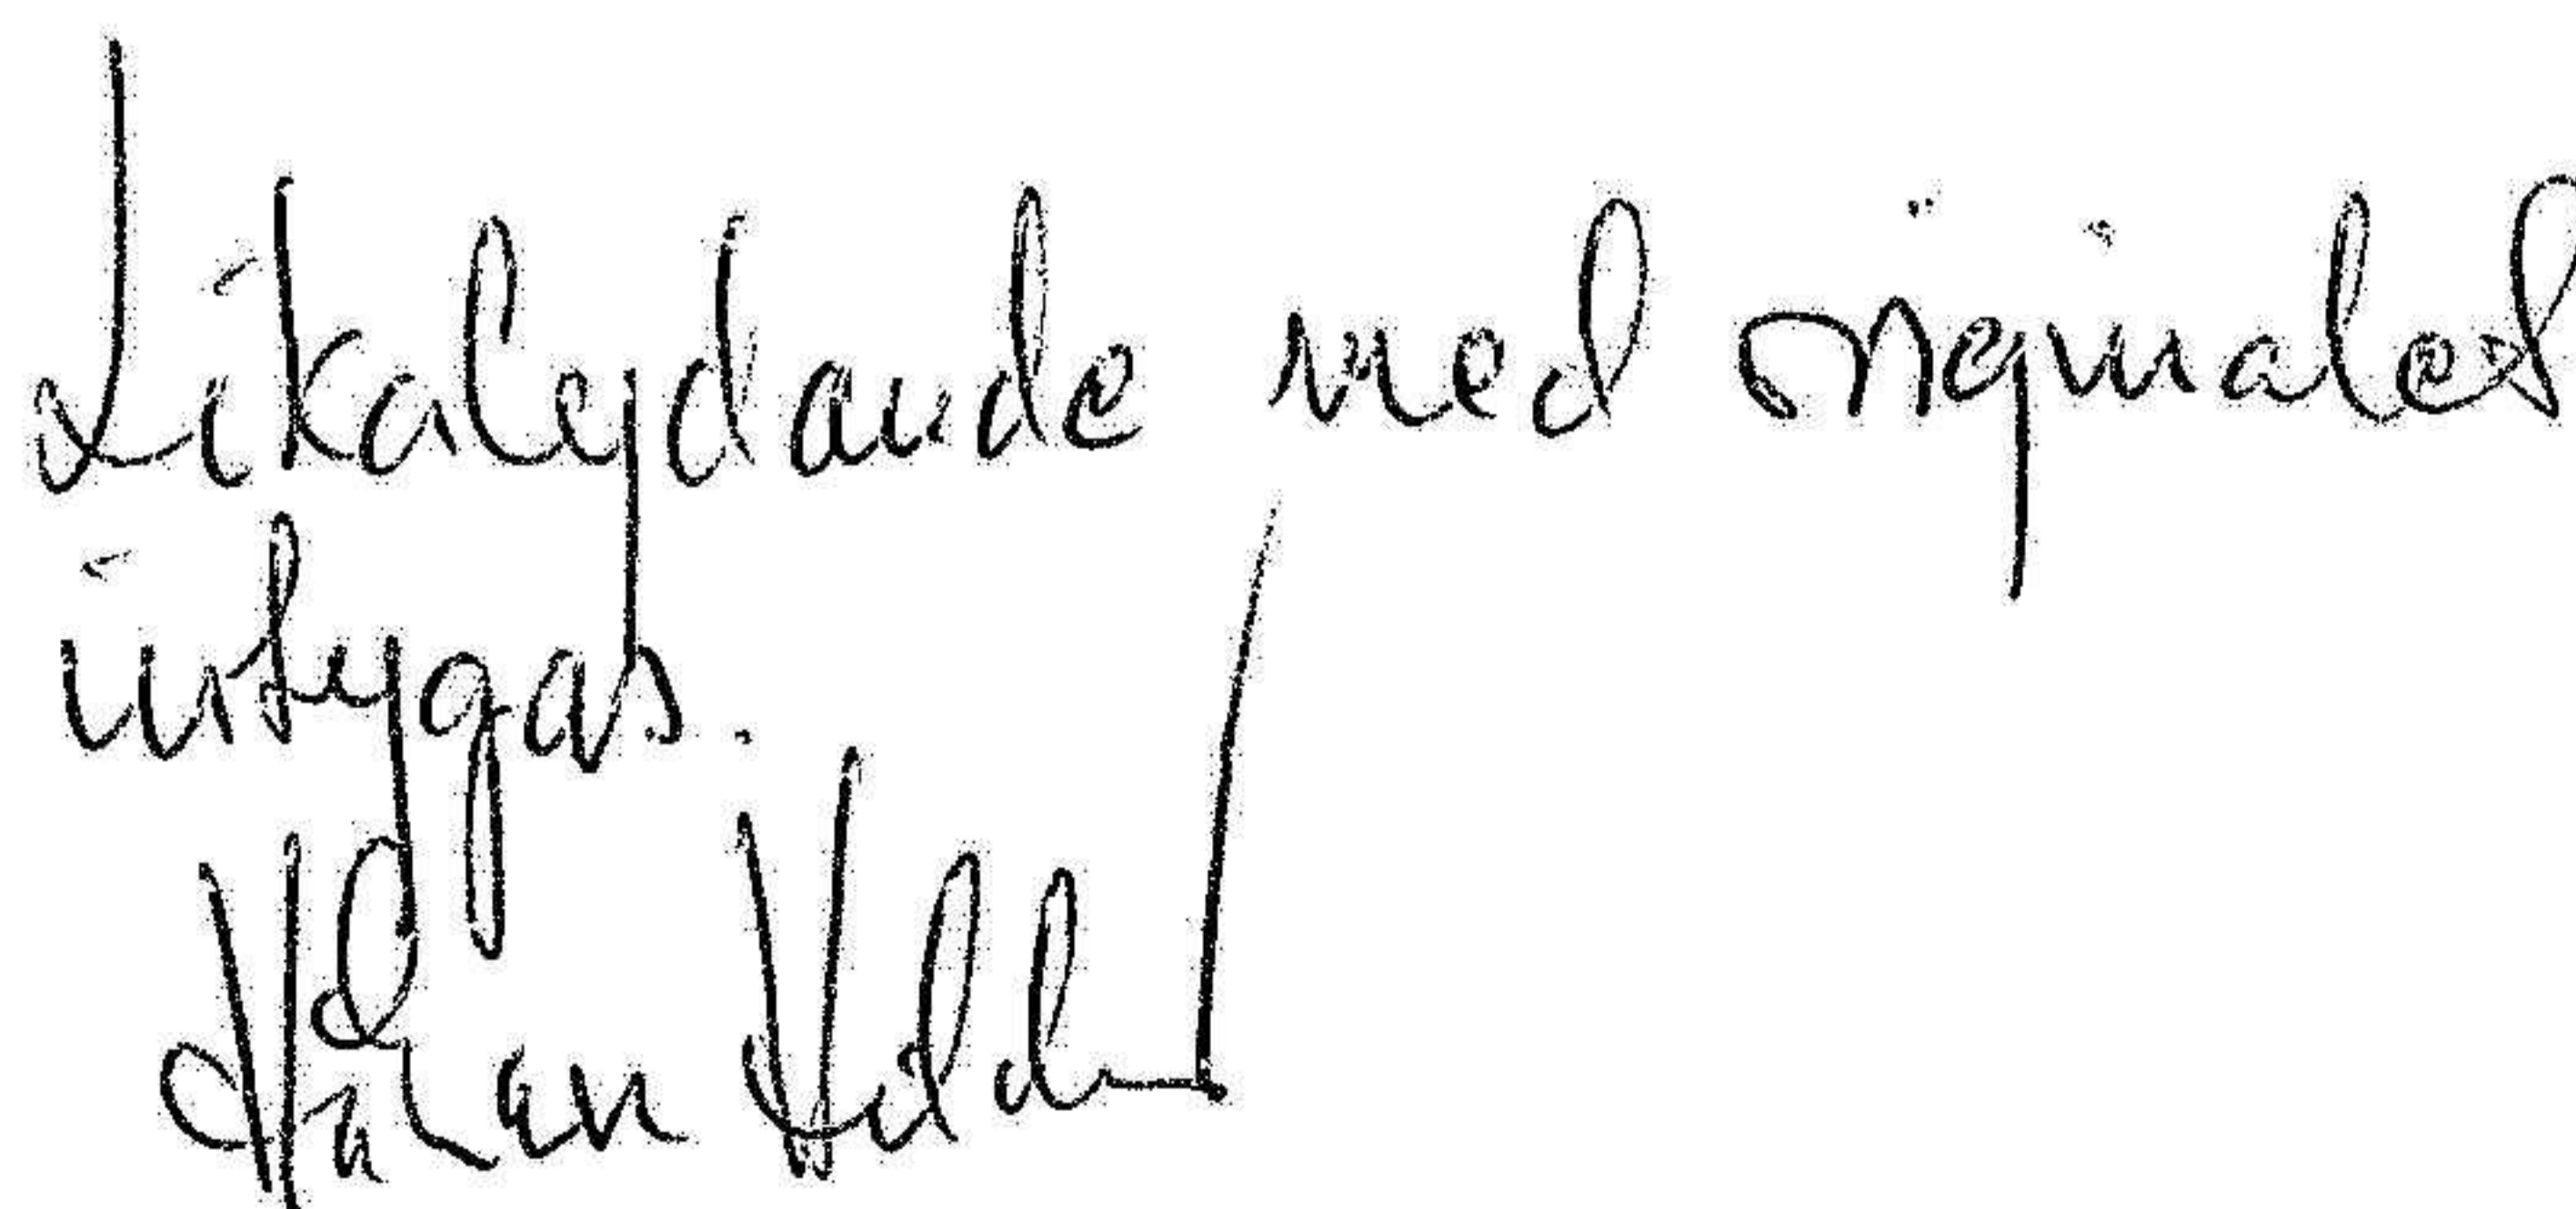 Likalydande med originalet
intygas.
Håkan